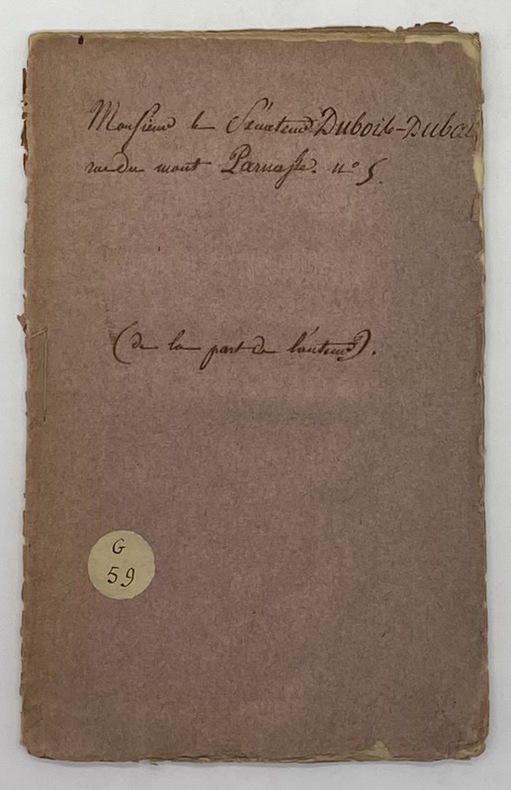 Monsieur le Sénateur Dubois-Dubais
rue du mont Parnasse. n° 5.
(de la part de l'auteur).
G
59